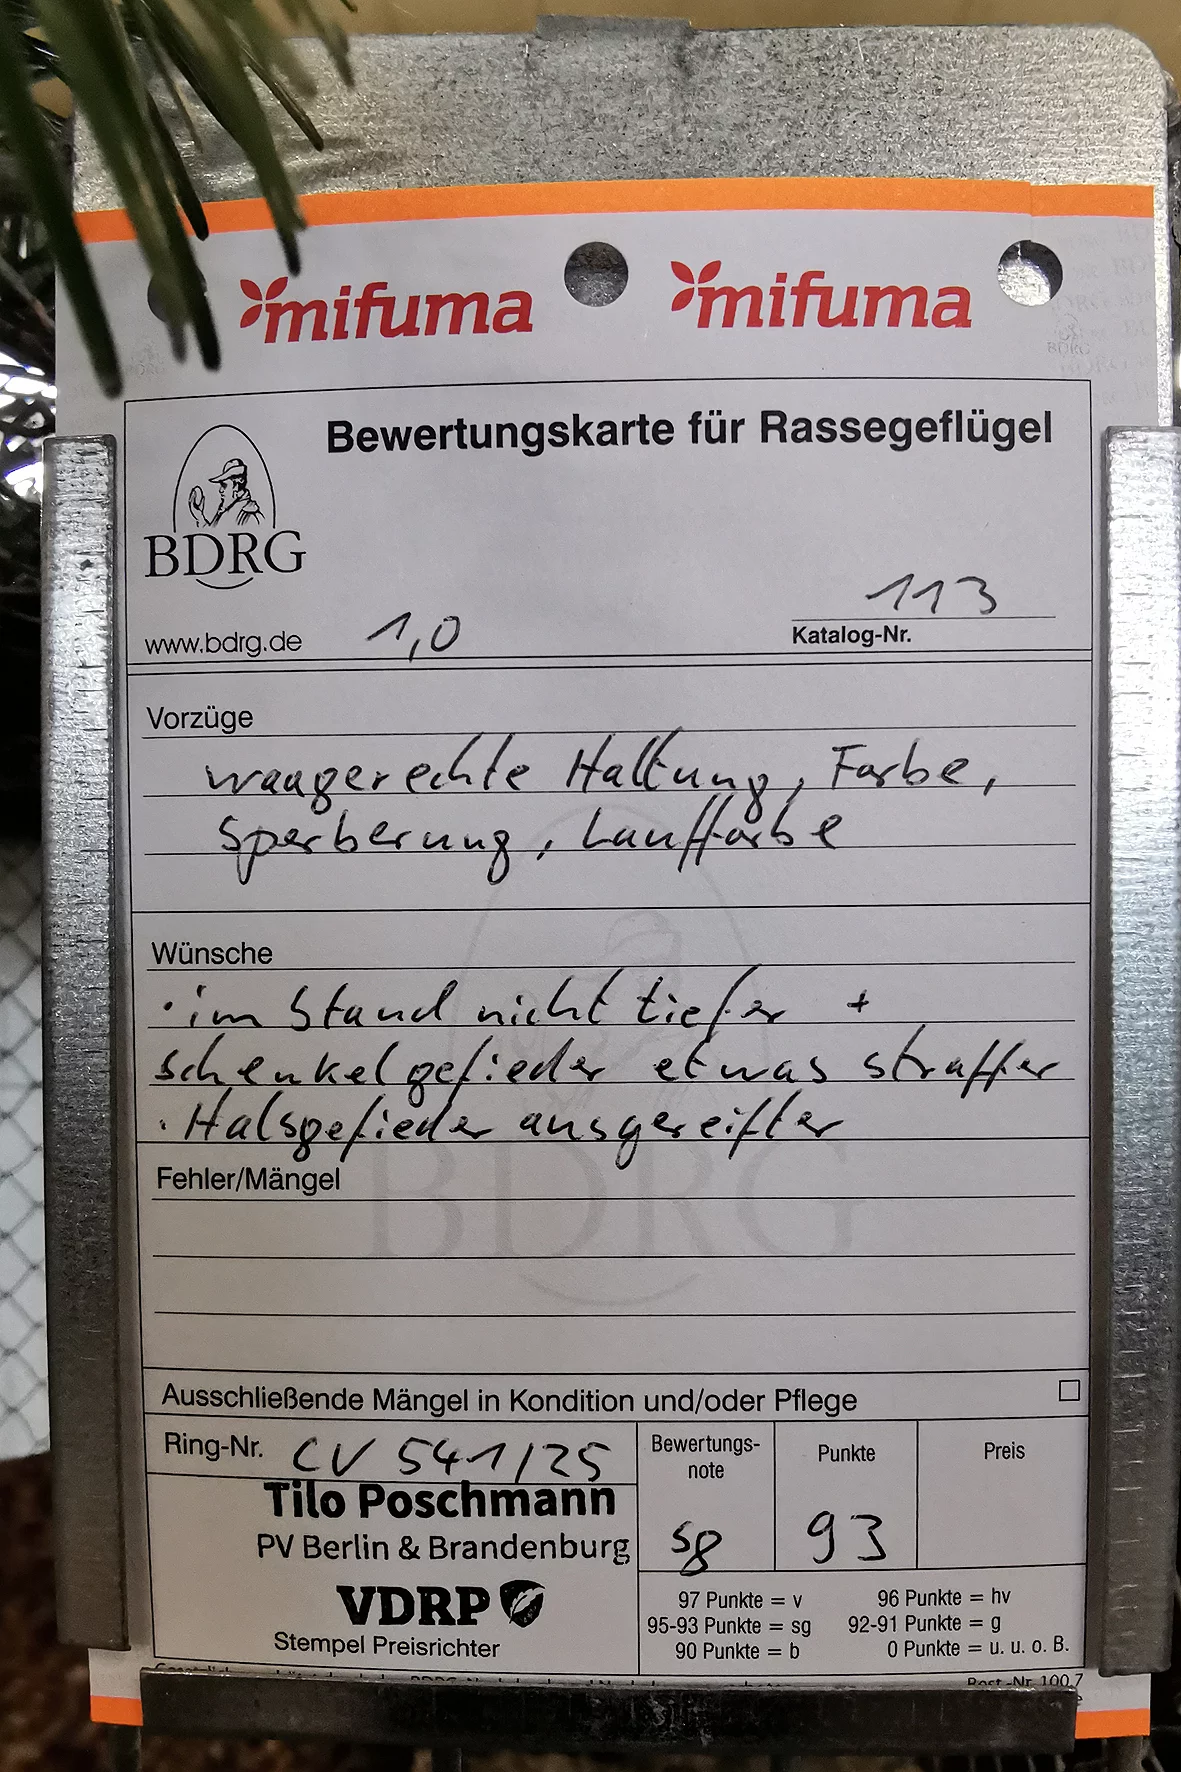 mifuma mifuma
Bewertungskarte für Rassegeflügel
BDRG
www.bdrg.de 1,0
113
Katalog-Nr.
Vorzüge
waagerechte Haltung, Farbe,
Sperberung, Lauffarbe
Wünsche
· im Stand nicht tiefer +
Schenkelgefieder etwas straffer
· Halsgefieder ausgereifter
BDRG
Fehler/Mängel
Ausschließende Mängel in Kondition und/oder Pflege
Ring-Nr. CV 541/25
Tilo Poschmann
PV Berlin & Brandenburg
VDRP
Stempel Preisrichter
Bewertungs-
note
sg
Punkte
93
Preis
97 Punkte = v 96 Punkte = hv
95-93 Punkte = sg 92-91 Punkte = g
90 Punkte = b 0 Punkte = u. u. o. B.
Best.-Nr. 100.7